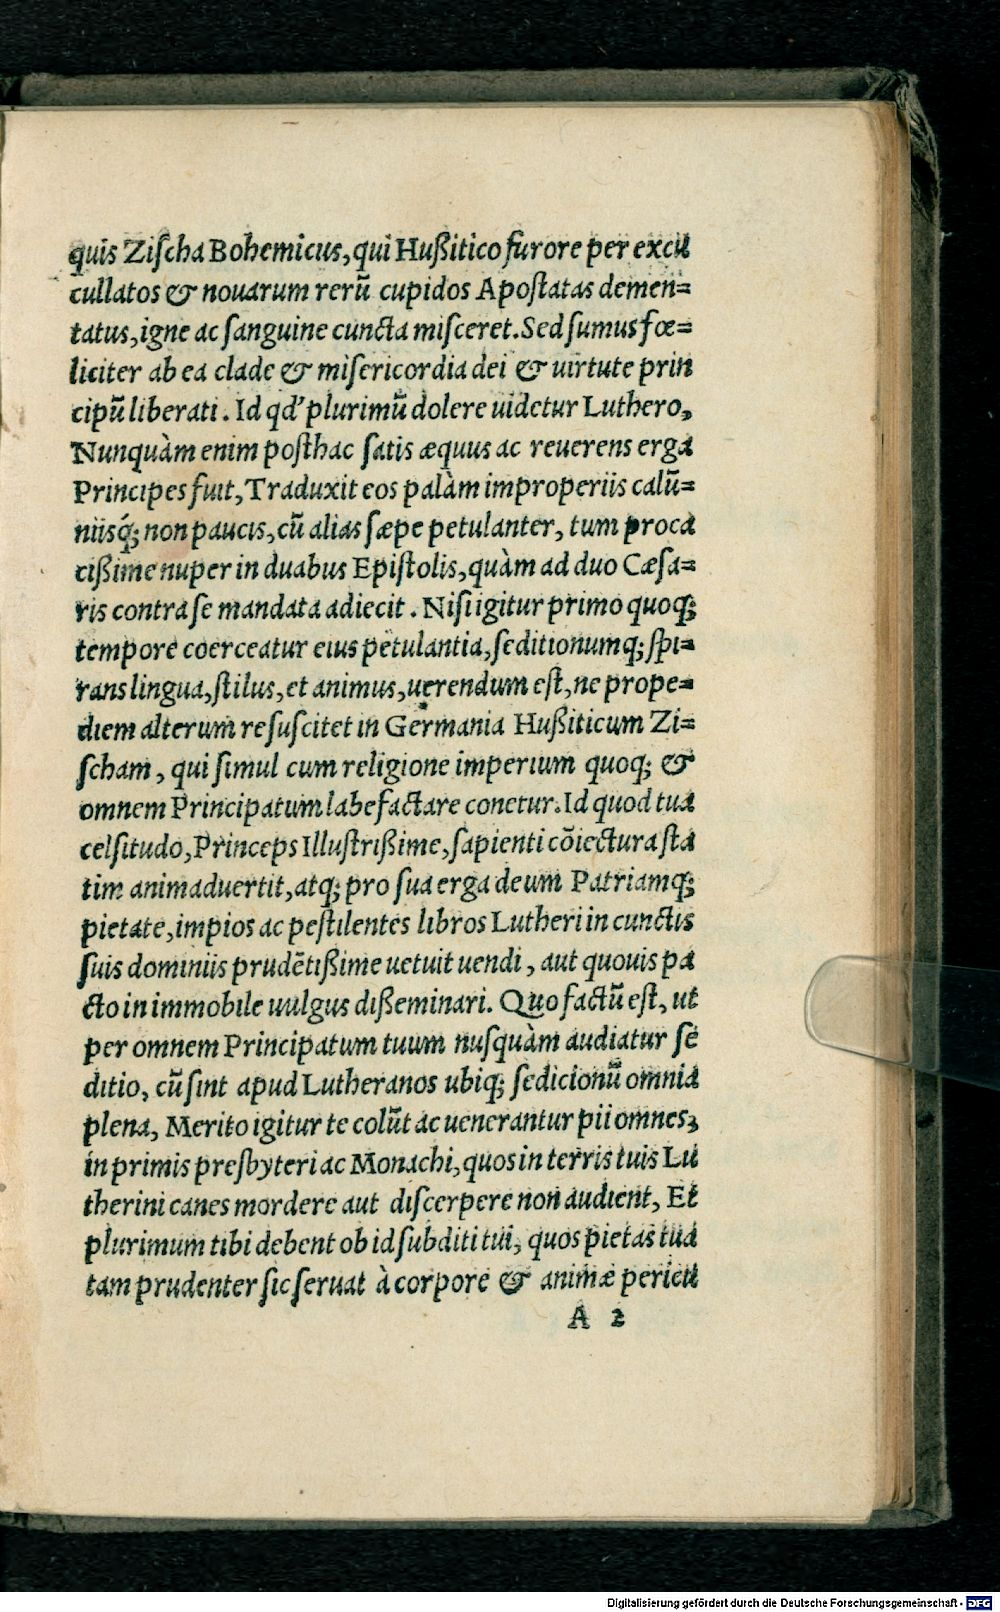 quis Ziſcha Bohemicus, qui Hußitico furore per excu
cullatos & nouarum rerũ cupidos Apoſtatas demen=
tatus, igne ac ſanguine cuncta miſceret. Sed ſumus fœ=
liciter ab ea clade & miſericordia dei & uirtute prin
cipũ liberati. Id qd’ plurimũ dolere uidetur Luthero,
Nunquàm enim poſthac ſatis æquus ac reuerens erga
Principes fuit, Traduxit eos palàm improperiis calũ=
niisq́; non paucis, cũ alias ſæpe petulanter, tum proca
cißime nuper in duabus Epiſtolis, quàm ad duo Cæſa=
ris contra ſe mandata adiecit. Niſi igitur primo quoq;
tempore coerceatur eius petulantia, ſeditionumq; ſpi=
rans lingua, ſtilus, et animus, uerendum eſt, ne prope=
diem alterum reſuſcitet in Germania Hußiticum Zi=
ſcham, qui ſimul cum religione imperium quoq; &
omnem Principatum labefactare conetur. Id quod tua
celſitudo, Princeps Illuſtrißime, ſapienti cõiectura ſta
tim animaduertit, atq; pro ſua erga deum Patriamq;
pietate, impios ac peſtilentes libros Lutheri in cunctis
ſuis dominiis prudẽtißime uetuit uendi, aut quouis pa
cto in immobile uulgus dißeminari. Quo factũ eſt, ut
per omnem Principatum tuum nuſquàm audiatur ſe
ditio, cũ ſint apud Lutheranos ubiq; ſedicionũ omnia
plena, Merito igitur te colũt ac uenerantur pii omnes,
in primis preſbyteri ac Monachi, quos in terris tuis Lu
therini canes mordere aut diſcerpere non audient, Et
plurimum tibi debent ob id ſubditi tui, quos pietas tua
tam prudenter ſic ſeruat à corpore & animæ pericu
A 2
Digitalisierung gefördert durch die Deutsche Forschungsgemeinschaft - DFG